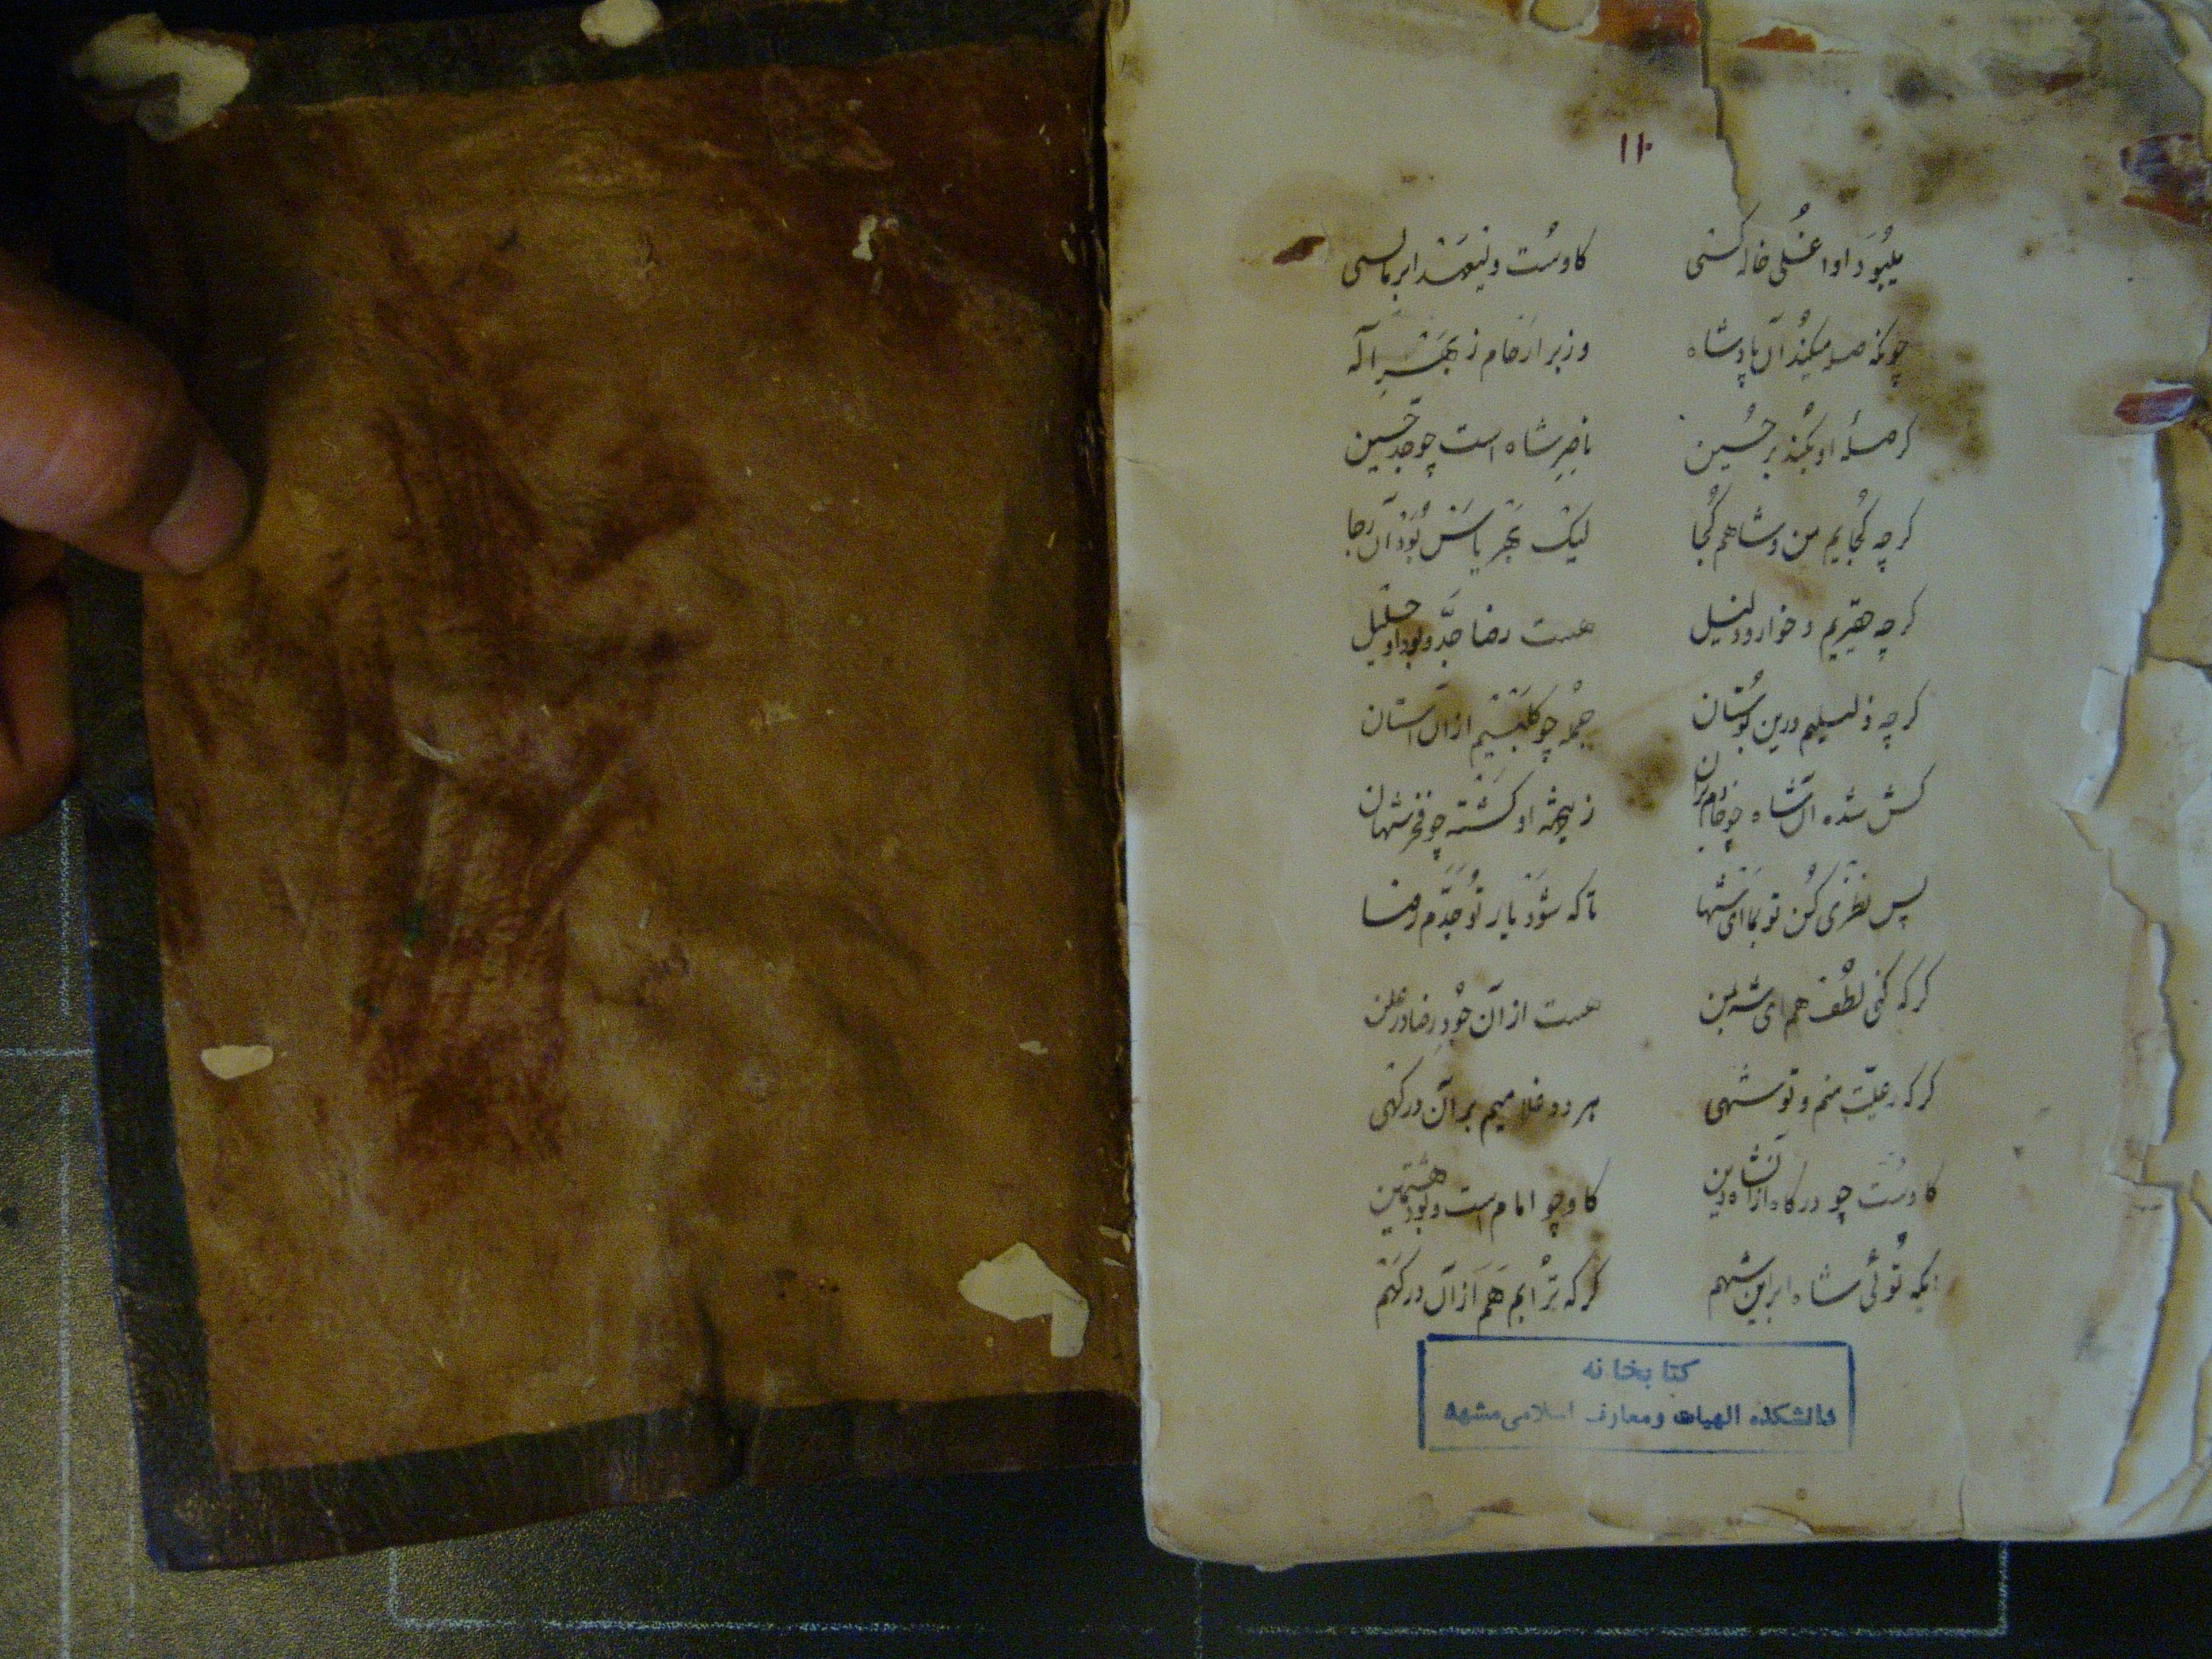 ۱۱۰
کاوست
چونکه صله میکند آن پادشاه وزبر ارحام ز بهر اله
کر صلهٔ او بکند بر حسین ناصر شاه است چو جد حسین
کرچه کجایم من و شاهم کجا لیک بجر یاسش بود آن رجا
کرچه حقیریم و خوار و ذلیل هست رضا جد و بود او جلیل
کرچه ذلیلیم درین بوستان جمله چو کلبیم از آن آستان
کش شده آن شاه چو خادم بران زیمه او کشته چو فخر شهان
پس نظری کن تو بما ای شها تا که شود یار تو جدم رضا
کر که کنی لطف هم ای شه بمن هست از آن جود رضا در علن
کر که رعیت منم و تو شهی هر دو غلامیم بر آن درکهی
کاوست چو درکاه از آن شاه دین کاو چو امام است و بود هشتمین
ایکه توئی شاه ابر این شهم کر که ترابم هم از آن درکهم
کتابخانه
دانشکده الهیات ومعارف اسلامی مشهد